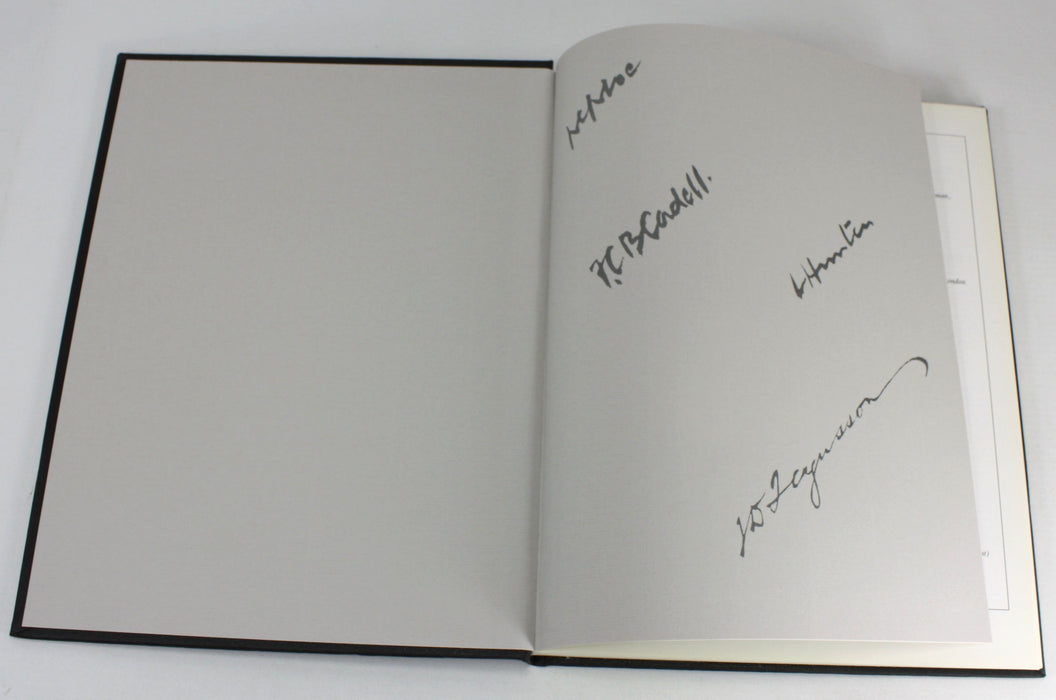 peploe
F.C.B Cadell.
L Hunter
JD Fergusson